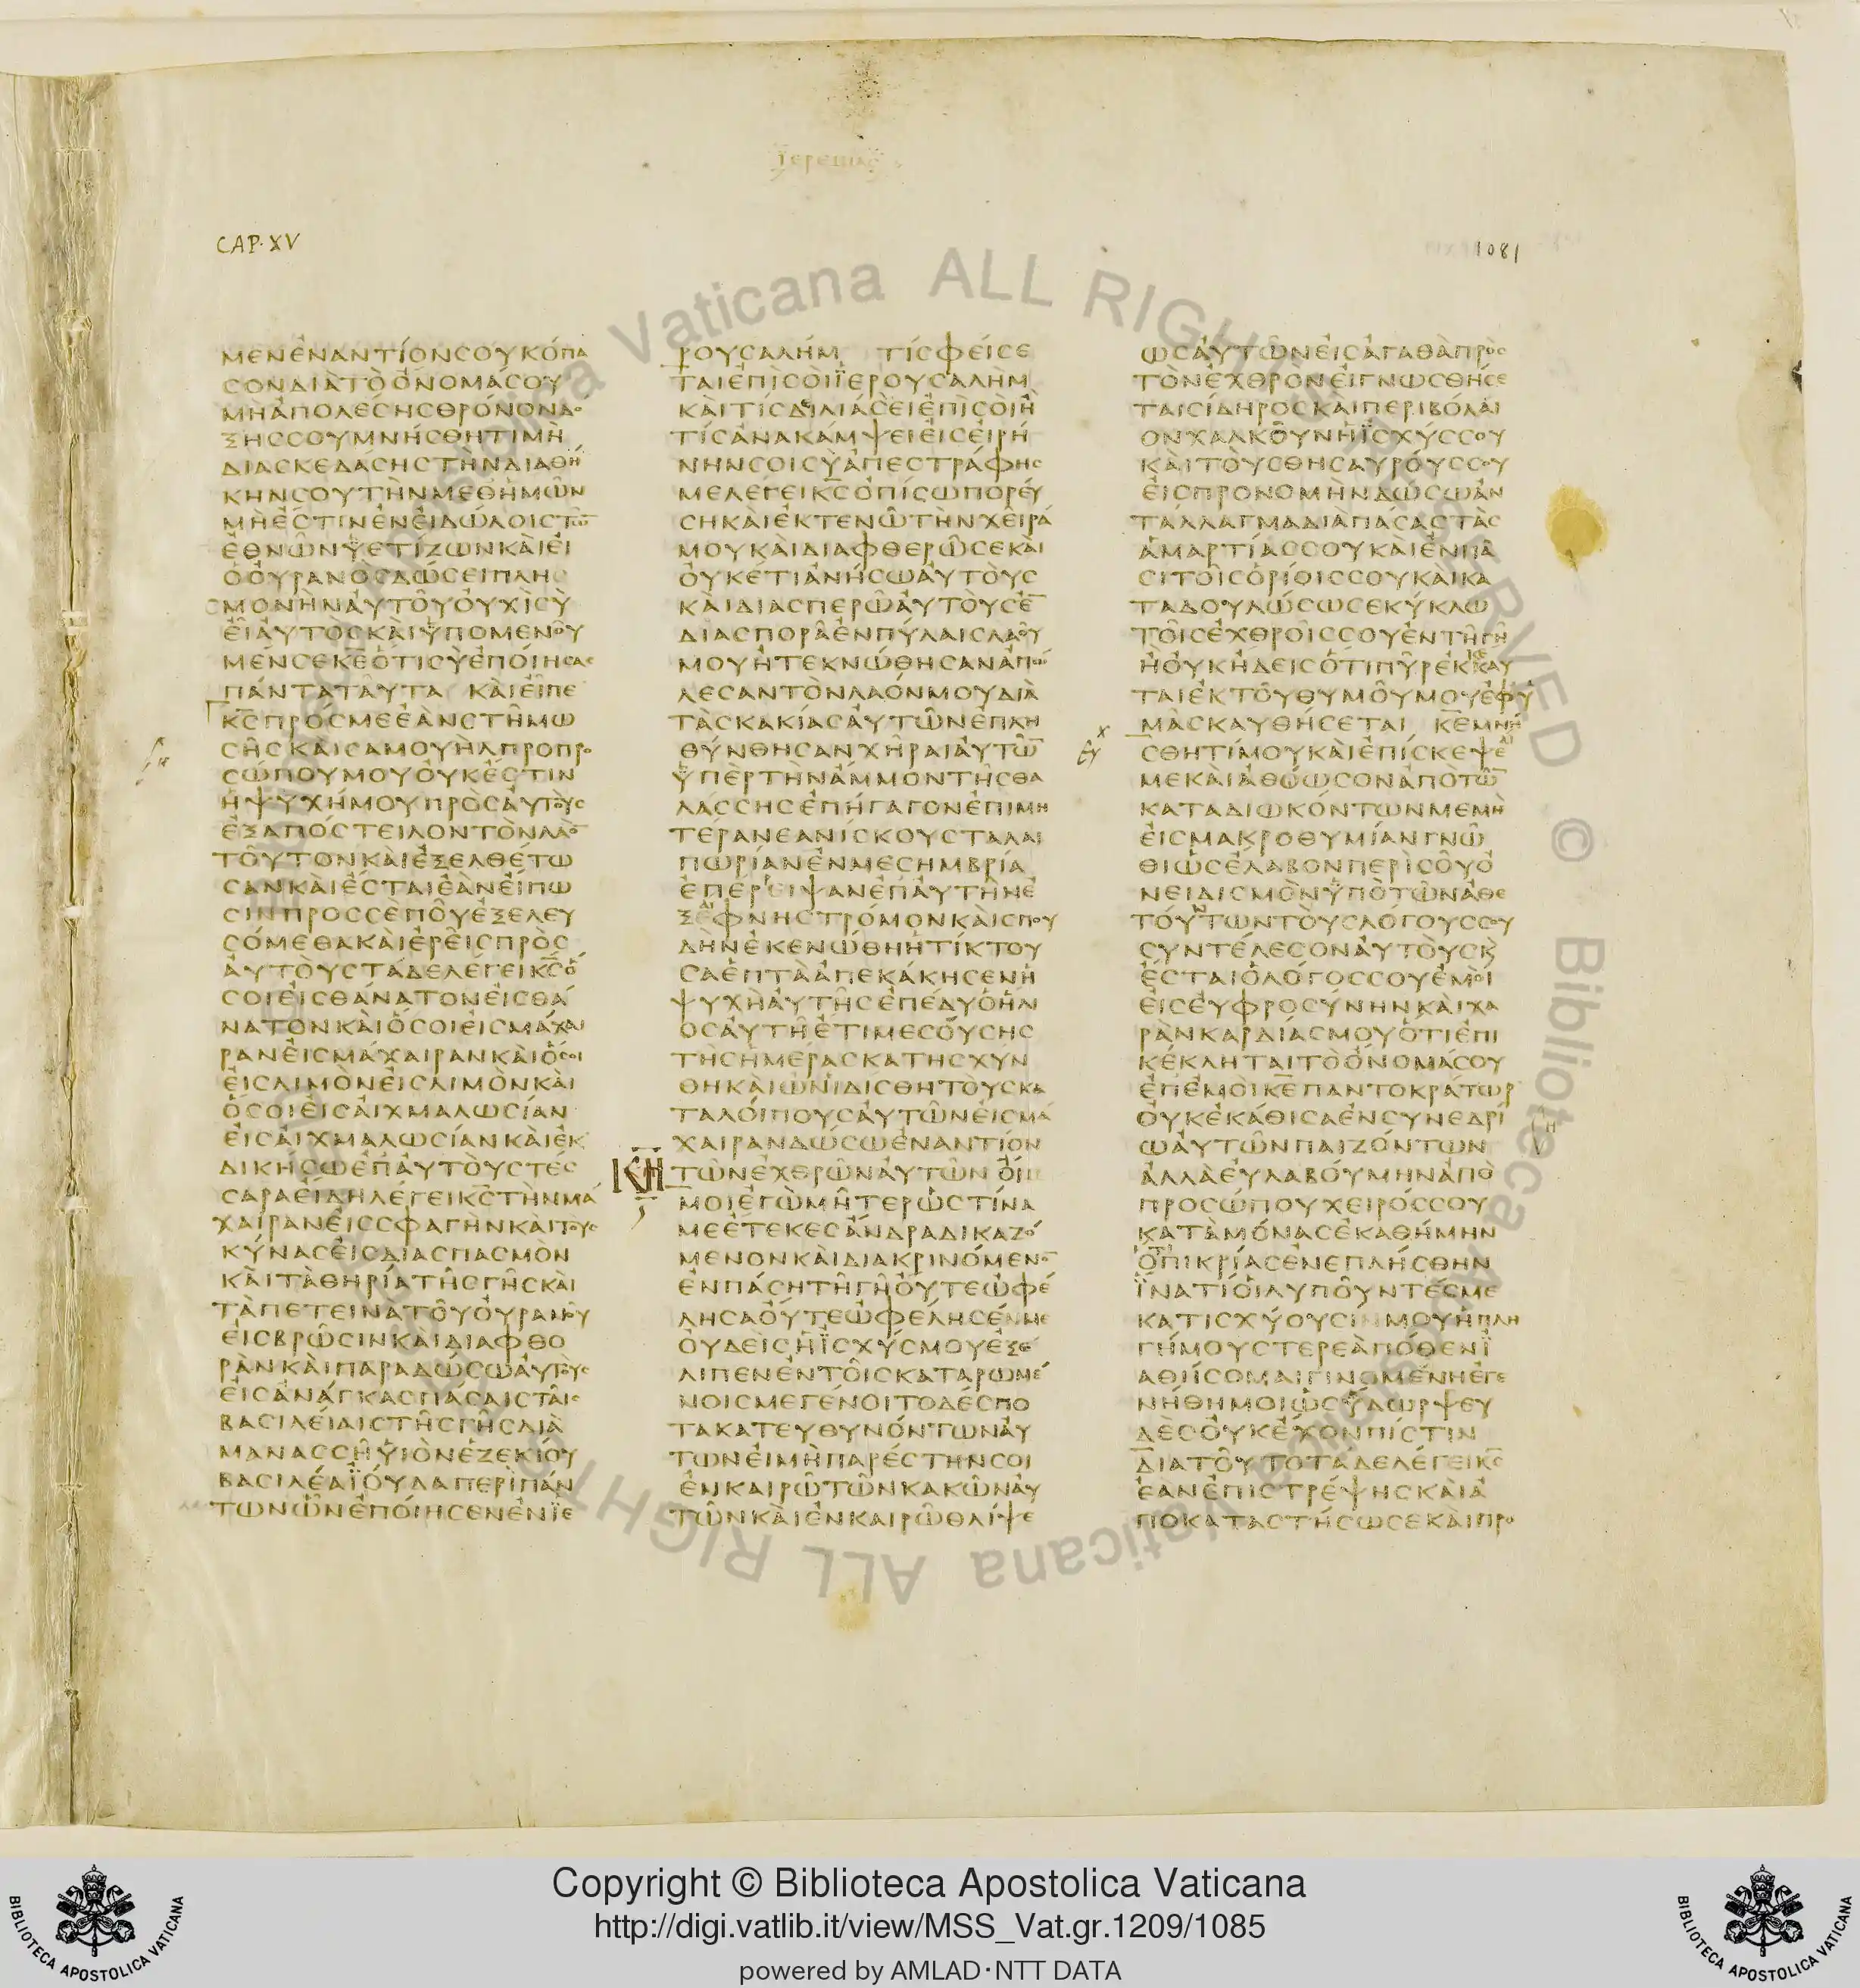 ϊερεμιας
CAP·XV
1081
ΜΕΝΕΝΑΝΤΙΟΝΣΟΥΚΟΠΑ
ΣΟΝΔΙΑΤΟΟΝΟΜΑΣΟΥ
ΜΗΑΠΟΛΕΣΗΣΘΡΟΝΟΝΔΟ
ΞΗΣΣΟΥΜΝΗΣΘΗΤΙΜΗ
ΔΙΑΣΚΕΔΑΣΗΣΤΗΝΔΙΑΘΗ
ΚΗΝΣΟΥΤΗΝΜΕΘΗΜΩΝ
ΜΗΕΣΤΙΝΕΝΕΙΔΩΛΟΙΣΤΩ̅
ΕΘΝΩΝΥΕΤΙΖΩΝΚΑΙΕΙ
ΟΟΥΡΑΝΟΣΔΩΣΕΙΠΛΗΣ
ΜΟΝΗΝΑΥΤΟΥΟΥΧΙΣΥ
ΕΙΑΥΤΟΣΚΑΙΥΠΟΜΕΝΟΥ
ΜΕΝΣΕΚ̅Ε̅ΟΤΙΣΥΕΠΟΙΗΣΑΣ
ΠΑΝΤΑΤΑΥΤΑ ΚΑΙΕΙΠΕ
Κ̅Σ̅ΠΡΟΣΜΕΕΑΝΣΤΗΜΩ
ΣΗΣΚΑΙΣΑΜΟΥΗΛΠΡΟΠΡΟ
ΣΩΠΟΥΜΟΥΟΥΚΕΣΤΙΝ
ΗΨΥΧΗΜΟΥΠΡΟΣΑΥΤΟΥΣ
ΕΞΑΠΟΣΤΕΙΛΟΝΤΟΝΛΑΟ̅
ΤΟΥΤΟΝΚΑΙΕΞΕΛΘΕΤΩ
ΣΑΝΚΑΙΕΣΤΑΙΕΑΝΕΙΠΩ
ΣΙΝΠΡΟΣΣΕΠΟΥΕΞΕΛΕΥ
ΣΟΜΕΘΑΚΑΙΕΡΕΙΣΠΡΟΣ
ΑΥΤΟΥΣΤΑΔΕΛΕΓΕΙΚ̅Σ̅Ο
ΣΟΙΕΙΣΘΑΝΑΤΟΝΕΙΣΘΑ
ΝΑΤΟΝΚΑΙΟΣΟΙΕΙΣΜΑΧΑΙ
ΡΑΝΕΙΣΜΑΧΑΙΡΑΝΚΑΙΟΣΟΙ
ΕΙΣΛΙΜΟΝΕΙΣΛΙΜΟΝΚΑΙ
ΟΣΟΙΕΙΣΑΙΧΜΑΛΩΣΙΑΝ
ΕΙΣΑΙΧΜΑΛΩΣΙΑΝΚΑΙΕΚ
ΔΙΚΗΣΩΕΠΑΥΤΟΥΣΤΕΣ
ΣΑΡΑΕΙΔΗΛΕΓΕΙΚ̅Σ̅ΤΗΝΜΑ
ΧΑΙΡΑΝΕΙΣΣΦΑΓΗΝΚΑΙΤΟΥΣ
ΚΥΝΑΣΕΙΣΔΙΑΣΠΑΣΜΟΝ
ΚΑΙΤΑΘΗΡΙΑΤΗΣΓΗΣΚΑΙ
ΤΑΠΕΤΕΙΝΑΤΟΥΟΥΡΑΝΟΥ
ΕΙΣΒΡΩΣΙΝΚΑΙΔΙΑΦΘΟ
ΡΑΝΚΑΙΠΑΡΑΔΩΣΩΑΥΤΟΥΣ
ΕΙΣΑΝΑΓΚΑΣΠΑΣΑΙΣΤΑΙΣ
ΒΑΣΙΛΕΙΑΙΣΤΗΣΓΗΣΔΙΑ
ΜΑΝΑΣΣΗΥΙΟΝΕΖΕΚΙΟΥ
ΒΑΣΙΛΕΑΪΟΥΔΑΠΕΡΙΠΑΝ
ΤΩΝΩΝΕΠΟΙΗΣΕΝΕΝΪΕ
ΡΟΥΣΑΛΗΜ ΤΙΣΦΕΙΣΕ
ΤΑΙΕΠΙΣΟΙΪΕΡΟΥΣΑΛΗΜ
ΚΑΙΤΙΣΔΙΛΙΑΣΕΙΕΠΙΣΟΙΗ
ΤΙΣΑΝΑΚΑΜΨΕΙΕΙΣΕΙΡΗ
ΝΗΝΣΟΙΣΥΑΠΕΣΤΡΑΦΗΣ
ΜΕΛΕΓΕΙΚ̅Σ̅ΟΠΙΣΩΠΟΡΕΥ
ΣΗΚΑΙΕΚΤΕΝΩΤΗΝΧΕΙΡΑ
ΜΟΥΚΑΙΔΙΑΦΘΕΡΩΣΕΚΑΙ
ΟΥΚΕΤΙΑΝΗΣΩΑΥΤΟΥΣ
ΚΑΙΔΙΑΣΠΕΡΩΑΥΤΟΥΣΕ̅
ΔΙΑΣΠΟΡΑΕΝΠΥΛΑΙΣΛΑΟΥ
ΜΟΥΗΤΕΚΝΩΘΗΣΑΝΑΠΩ
ΛΕΣΑΝΤΟΝΛΑΟΝΜΟΥΔΙΑ
ΤΑΣΚΑΚΙΑΣΑΥΤΩΝΕΠΛΗ
ΘΥΝΘΗΣΑΝΧΗΡΑΙΑΥΤΩ̅
ΥΠΕΡΤΗΝΑΜΜΟΝΤΗΣΘΑ
ΛΑΣΣΗΣΕΠΗΓΑΓΟΝΕΠΙΜΗ
ΤΕΡΑΝΕΑΝΙΣΚΟΥΣΤΑΛΑΙ
ΠΩΡΙΑΝΕΝΜΕΣΗΜΒΡΙΑ
ΕΠΕΡΕΙΨΑΝΕΠΑΥΤΗΝΕ
ΞΕΦΝΗΣΤΡΟΜΟΝΚΑΙΣΠΟΥ
ΔΗΝΕΚΕΝΩΘΗΗΤΙΚΤΟΥ
ΣΑΕΠΤΑΑΠΕΚΑΚΗΣΕΝΗ
ΨΥΧΗΑΥΤΗΣΕΠΕΔΥΟΗΛΙ
ΟΣΑΥΤΗΕΤΙΜΕΣΟΥΣΗΣ
ΤΗΣΗΜΕΡΑΣΚΑΤΗΣΧΥΝ
ΘΗΚΑΙΩΝΙΔΙΣΘΗΤΟΥΣΚΑ
ΤΑΛΟΙΠΟΥΣΑΥΤΩΝΕΙΣΜΑ
ΧΑΙΡΑΝΔΩΣΩΕΝΑΝΤΙΟΝ
ΚΗ ΤΩΝΕΧΘΡΩΝΑΥΤΩΝ ΟΙΜ
ΜΟΙΕΓΩΜΗΤΕΡΩΣΤΙΝΑ
ΜΕΕΤΕΚΕΣΑΝΔΡΑΔΙΚΑΖΟ
ΜΕΝΟΝΚΑΙΔΙΑΚΡΙΝΟΜΕΝΟ̅
ΕΝΠΑΣΗΤΗΓΗΟΥΤΕΩΦΕ
ΛΗΣΑΟΥΤΕΩΦΕΛΗΣΕΝΜΕ
ΟΥΔΕΙΣΗΪΣΧΥΣΜΟΥΕΞΕ
ΛΙΠΕΝΕΝΤΟΙΣΚΑΤΑΡΩΜΕ
ΝΟΙΣΜΕΓΕΝΟΙΤΟΔΕΣΠΟ
ΤΑΚΑΤΕΥΘΥΝΟΝΤΩΝΑΥ
ΤΩΝΕΙΜΗΠΑΡΕΣΤΗΝΣΟΙ
ΕΝΚΑΙΡΩΤΩΝΚΑΚΩΝΑΥ
ΤΩΝΚΑΙΕΝΚΑΙΡΩΘΛΙΨΕ
ΩΣΑΥΤΩΝΕΙΣΑΓΑΘΑΠΡΟΣ
ΤΟΝΕΧΘΡΟΝΕΙΓΝΩΣΘΗΣΕ
ΤΑΙΣΙΔΗΡΟΣΚΑΙΠΕΡΙΒΟΛΑΙ
ΟΝΧΑΛΚΟΥΝΗΪΣΧΥΣΣΟΥ
ΚΑΙΤΟΥΣΘΗΣΑΥΡΟΥΣΣΟΥ
ΕΙΣΠΡΟΝΟΜΗΝΔΩΣΩΑΝ
ΤΑΛΛΑΓΜΑΔΙΑΠΑΣΑΣΤΑΣ
ΑΜΑΡΤΙΑΣΣΟΥΚΑΙΕΝΠΑ
ΣΙΤΟΙΣΟΡΙΟΙΣΣΟΥΚΑΙΚΑ
ΤΑΔΟΥΛΩΣΩΣΕΚΥΚΛΩ
ΤΟΙΣΕΧΘΡΟΙΣΣΟΥΕΝΤΗΓΗ
ΗΟΥΚΗΔΕΙΣΟΤΙΠΥΡΕΚΚΑΥ
ΤΑΙΕΚΤΟΥΘΥΜΟΥΜΟΥΕΦΥ
ΜΑΣΚΑΥΘΗΣΕΤΑΙ Κ̅Ε̅ΜΝΗ
ΣΘΗΤΙΜΟΥΚΑΙΕΠΙΣΚΕΨΕ
ΜΕΚΑΙΑΘΩΩΣΟΝΑΠΟΤΩ̅
ΚΑΤΑΔΙΩΚΟΝΤΩΝΜΕΜΗ
ΕΙΣΜΑΚΡΟΘΥΜΙΑΝΓΝΩ
ΘΙΩΣΕΛΑΒΟΝΠΕΡΙΣΟΥΟ
ΝΕΙΔΙΣΜΟΝΥΠΟΤΩΝΑΘΕ
ΤΟΥΤΩΝΤΟΥΣΛΟΓΟΥΣΣΟΥ
ΣΥΝΤΕΛΕΣΟΝΑΥΤΟΥΣΚ
ΕΣΤΑΙΟΛΟΓΟΣΣΟΥΕΜΟΙ
ΕΙΣΕΥΦΡΟΣΥΝΗΝΚΑΙΧΑ
ΡΑΝΚΑΡΔΙΑΣΜΟΥΟΤΙΕΠΙ
ΚΕΚΛΗΤΑΙΤΟΟΝΟΜΑΣΟΥ
ΕΠΕΜΟΙΚ̅Ε̅ΠΑΝΤΟΚΡΑΤΩΡ
ΟΥΚΕΚΑΘΙΣΑΕΝΣΥΝΕΔΡΙ
ΩΑΥΤΩΝΠΑΙΖΟΝΤΩΝ
ΑΛΛΑΕΥΛΑΒΟΥΜΗΝΑΠΟ
ΠΡΟΣΩΠΟΥΧΕΙΡΟΣΣΟΥ
ΚΑΤΑΜΟΝΑΣΕΚΑΘΗΜΗΝ
ΟΤΙΠΙΚΡΙΑΣΕΝΕΠΛΗΣΘΗΝ
ΪΝΑΤΙΟΙΛΥΠΟΥΝΤΕΣΜΕ
ΚΑΤΙΣΧΥΟΥΣΙΝΜΟΥΗΠΛΗ
ΓΗΜΟΥΣΤΕΡΕΑΠΟΘΕΝΪ
ΑΘΗΣΟΜΑΙΓΙΝΟΜΕΝΗΕΓΕ
ΝΗΘΗΜΟΙΩΣΥΔΩΡΨΕΥ
ΔΕΣΟΥΚΕΧΟΝΠΙΣΤΙΝ
ΔΙΑΤΟΥΤΟΤΑΔΕΛΕΓΕΙΚ̅Σ̅
ΕΑΝΕΠΙΣΤΡΕΨΗΣΚΑΙΑ
ΠΟΚΑΤΑΣΤΗΣΩΣΕΚΑΙΠΡΟ
Copyright © Biblioteca Apostolica Vaticana
http://digi.vatlib.it/view/MSS_Vat.gr.1209/1085
powered by AMLAD·NTT DATA
BIBLIOTECA APOSTOLICA VATICANA
BIBLIOTECA APOSTOLICA VATICANA